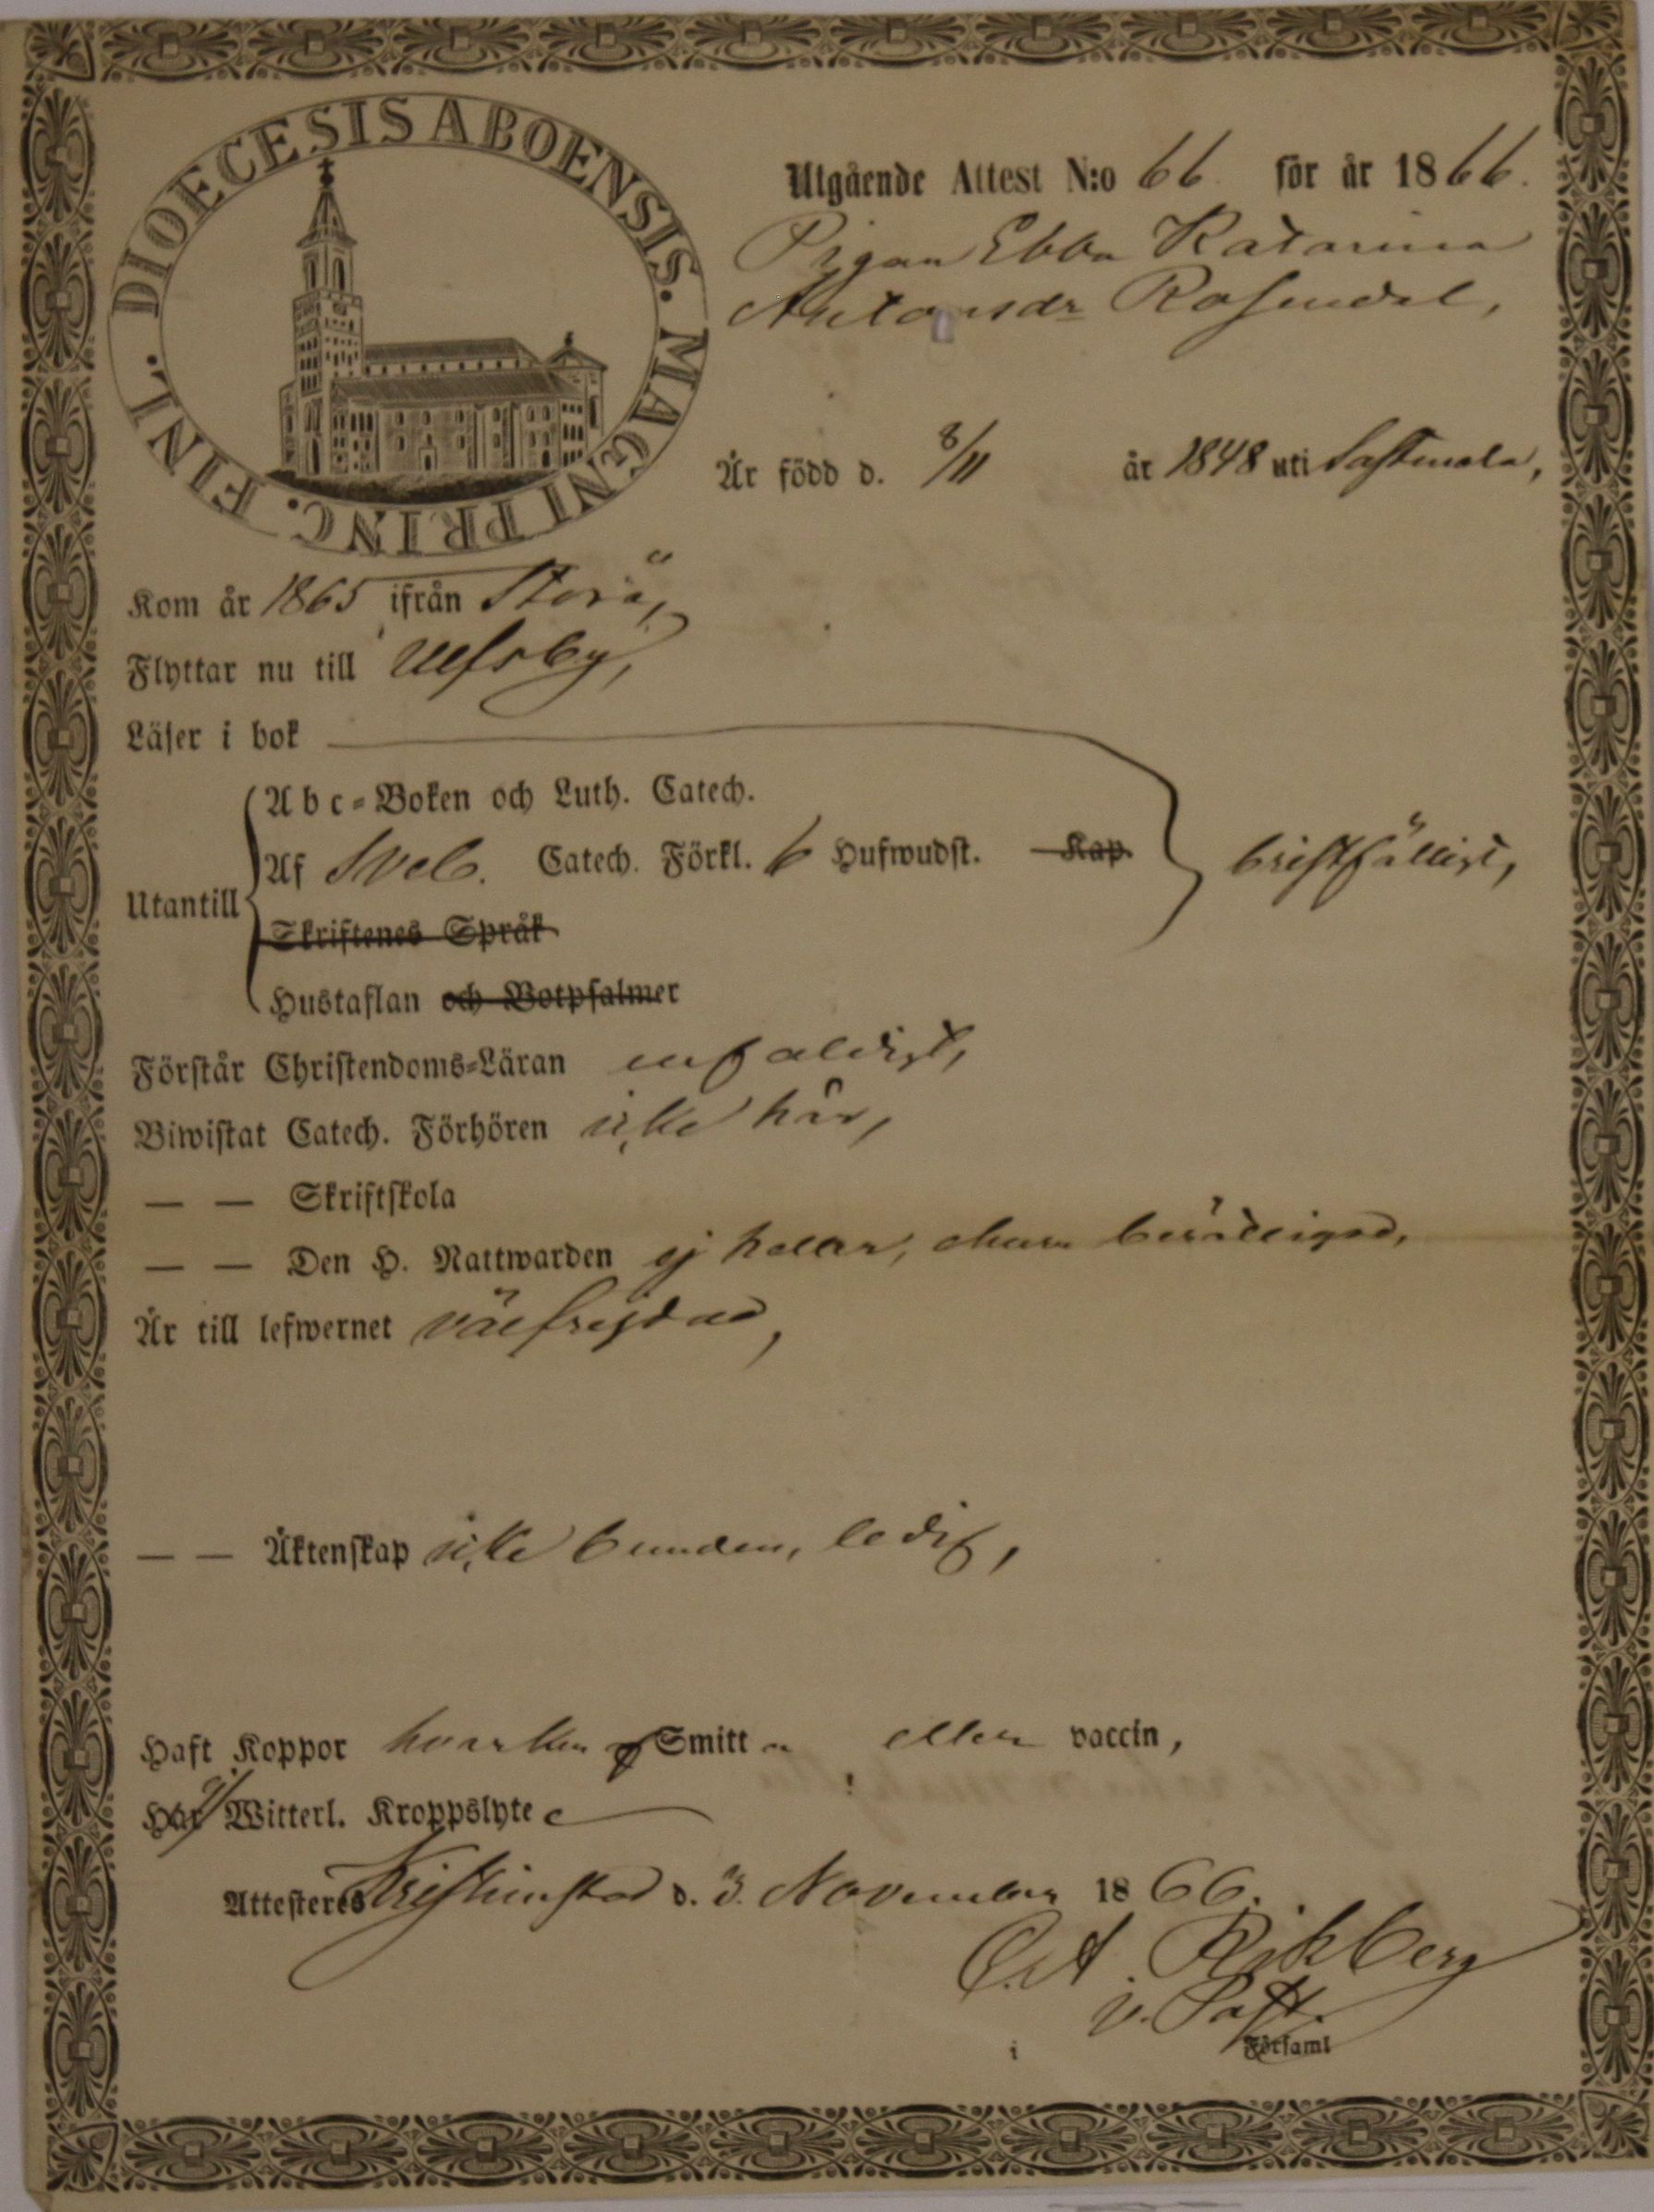 DIOECESIS ABOENSIS. MAGNI PRINC. FINL.
Utgående Attest N:o 66 för år 1866.
Pigan Ebba Katarina
Antonsdr Rosendal,
Är född d. 8/11 år 1848 uti Sastmola,
Kom år 1865 ifrån Storå,
Flyttar nu till Ulfsby,
Läser i bok
Abc-Boken och Luth. Catech.
Utantill Af Sveb. Catech. Förkl. 6 Hufwudst. Kap. bristfälligt,
Skriftenes Språk
Hustaflan och Botpsalmer
Förstår Christendoms-Läran enfaldigt,
Biwistat Catech. Förhören icke här,
— — Skriftskola
— — Den H. Nattwarden ej heller, ehuru berättigad,
Är till lefwernet välfrejdad,
— — Äktenskap icke bunden, ledig,
Haft Koppor hvarken Smitt eller vaccin,
Har ej Witterl. Kroppslyte
Attesteres Kristinestad d. 3. November 1866.
Rikberg
v. Past.
i Församl